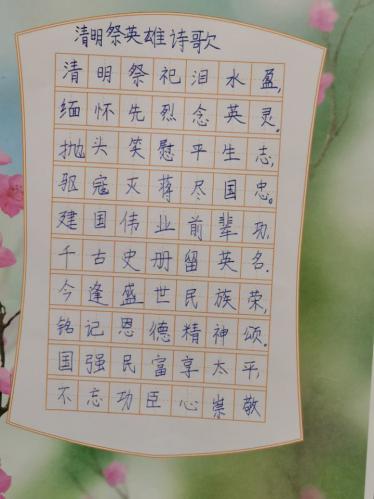 清明祭英雄诗歌
清明祭祀泪水盈,
缅怀先烈念英灵.
抛头笑慰平生志,
驱寇灭蒋尽国忠。
建国伟业前辈功,
千古史册留英名.
今逢盛世民族荣,
铭记恩德精神颂.
国强民富享太平,
不忘功臣心崇敬